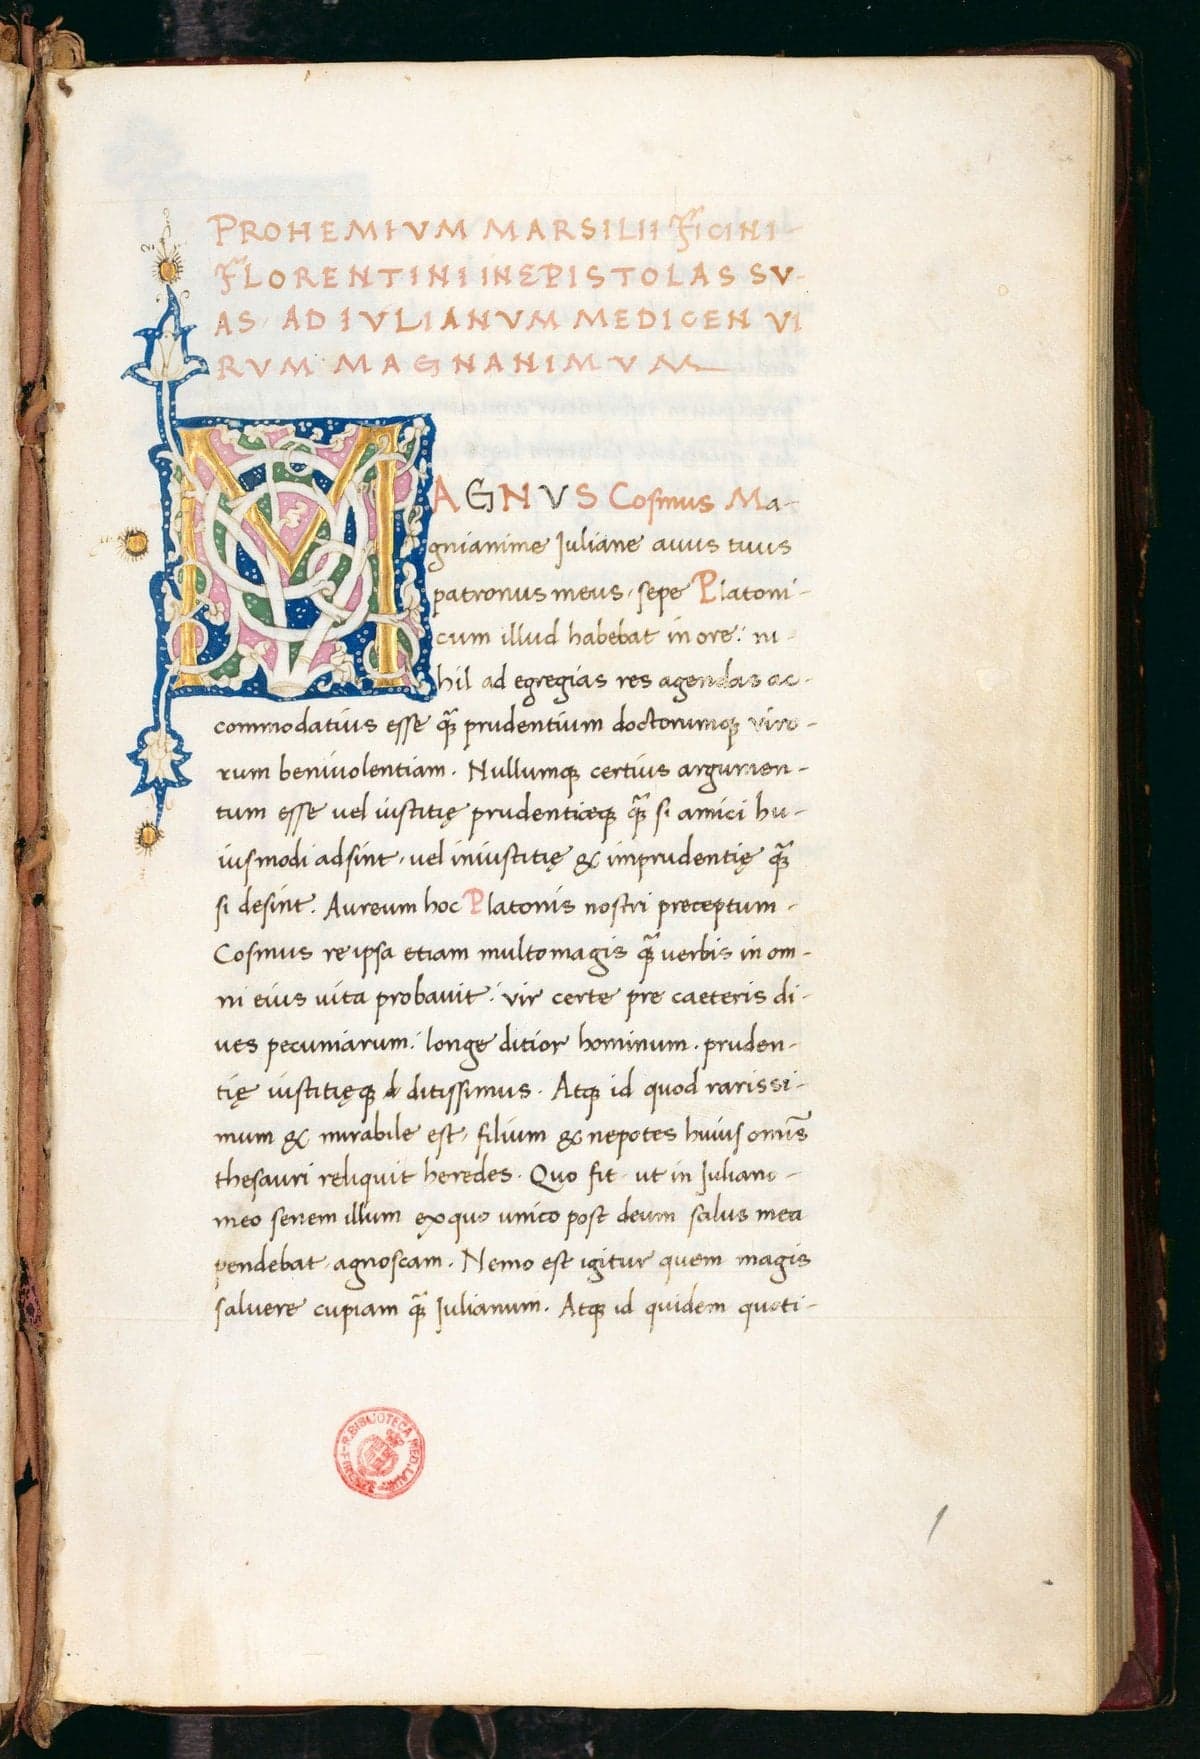 PROHEMIVM MARSILII FFICINI-
FFLORENTINI IN EPISTOLAS SV-
AS AD IVLIANVM MEDICEN VI
RVM MAGNANIMVM
MAGNVS Cosmus Ma-
gnianime Iuliane auus tuus
patronus meus, sepe Platoni-
cum illud habebat in ore: ni-
hil ad egregias res agendas ac-
commodatius esse quã prudentium doctorumqꝫ viro-
rum beniuolentiam. Nullumqꝫ certius argumen-
tum esse uel iustitię prudentięqꝫ quã si amici hu-
iusmodi adsint, uel iniustitię & imprudentię quã
si desint. Aureum hoc Platonis nostri preceptum-
Cosmus re ipsa etiam multo magis quã uerbis in om-
ni eius uita probauit: vir certe pre caeteris di-
ues pecuniarum: longe ditior hominum. pruden-
tię iustitięqꝫ d ditissimus. Atqꝫ id quod rarissi-
mum & mirabile est, filium & nepotes huius omĩs
thesauri reliquit heredes. Quo fit ut in Iuliano-
meo senem illum ex quo unico post deum salus mea
pendebat agnoscam. Nemo est igitur quem magis
saluere cupiam quã Iulianum. Atqꝫ id quidem quoti-
R. BIBLIOTECA MED. LAUR. FIRENZE
1